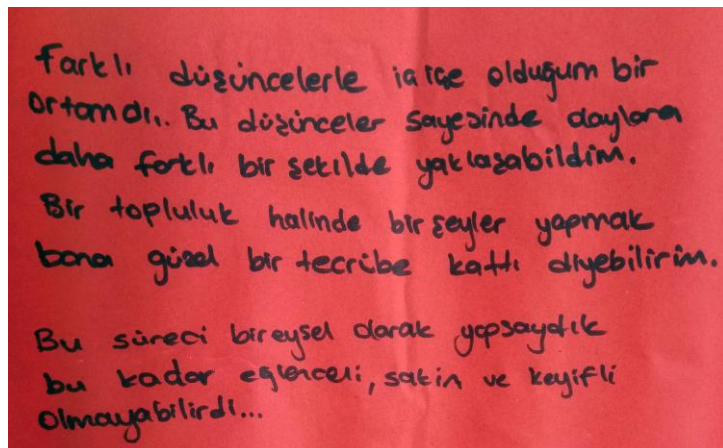 Farklı düşüncelerle iç içe olduğum bir
ortamdı. Bu düşünceler sayesinde olaylara
daha farklı bir şekilde yaklaşabildim.
Bir topluluk halinde bir şeyler yapmak
bana güzel bir tecrübe kattı diyebilirim.
Bu süreci bireysel olarak yapsaydık
bu kadar eğlenceli, sakin ve keyifli
olmayabilirdi...